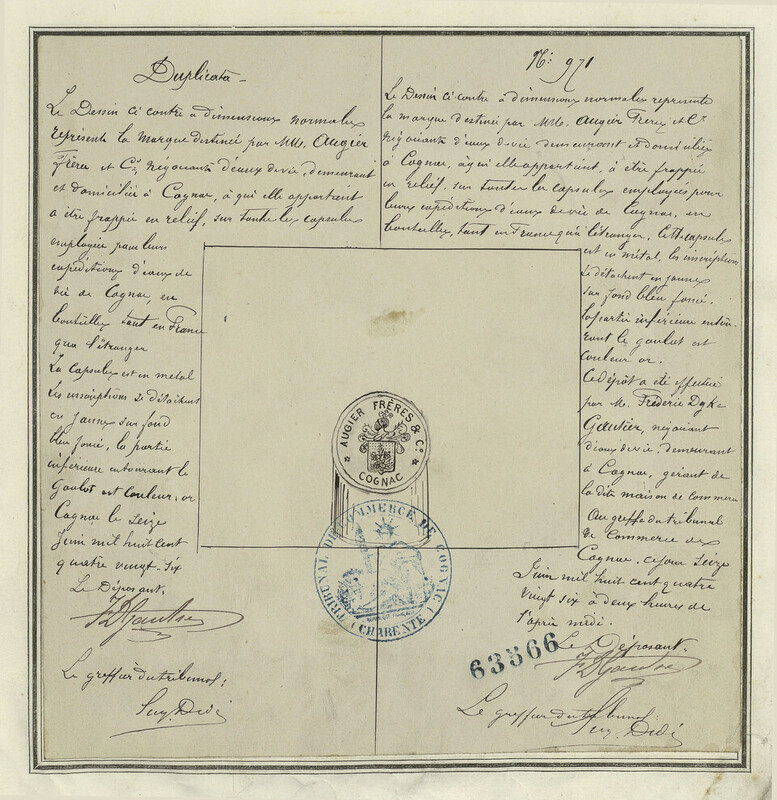 Duplicata
Le Dessin ci contre à dimensions normales
représente la marque destinée par MM. Augier
Frères et Co, négociants d'eaux de vie, demeurant
et domiciliés à Cognac, à qui elle appartient
à être frappée en relief, sur toutes les capsules
employées pour leurs
expéditions d'eaux de
vie de Cognac, en
bouteilles tant en France
qu'à l'étranger
La Capsule est en métal
Les inscriptions se détachent
en jaune sur fond
bleu foncé, la partie
inférieure entourant le
Goulot est Couleur, or
Cognac le Seize
Juin mil huit cent
quatre vingt. Six
Le Déposant.
F D Gautier
Le greffier du tribunal;
No: 971
Le Dessin ci-contre à dimensions normales représente
la marque destinée par MM. Augier Frères et Co
négociants d'eaux de vie demeurant et domiciliés
à Cognac, à qui elle appartient, à être frappée
en relief, sur toutes les capsules employées pour
leurs expéditions d'eaux de vie de Cognac, en
bouteilles, tant en France qu'à l'étranger. Cette capsule
est en métal, les inscriptions
se détachent en jaune
sur fond bleu foncé.
La partie inférieure entou-
rant le goulot est
couleur or.
Ce dépôt a été effectué
par M. Frédéric Dyke
Gautier, négociant
d'eaux de vie, demeurant
à Cognac, gérant de
la dite maison de commerce
Au greffe du tribunal
de Commerce de
Cognac. ce jour Seize
Juin mil huit cent quatre
vingt six à deux heures de
l'après midi.
Le Déposant.
F D Gautier
Le greffier du tribunal
AUGIER FRÈRES & Co.
COGNAC
TRIBUNAL DE COMMERCE DE COGNAC
(CHARENTE)
63566